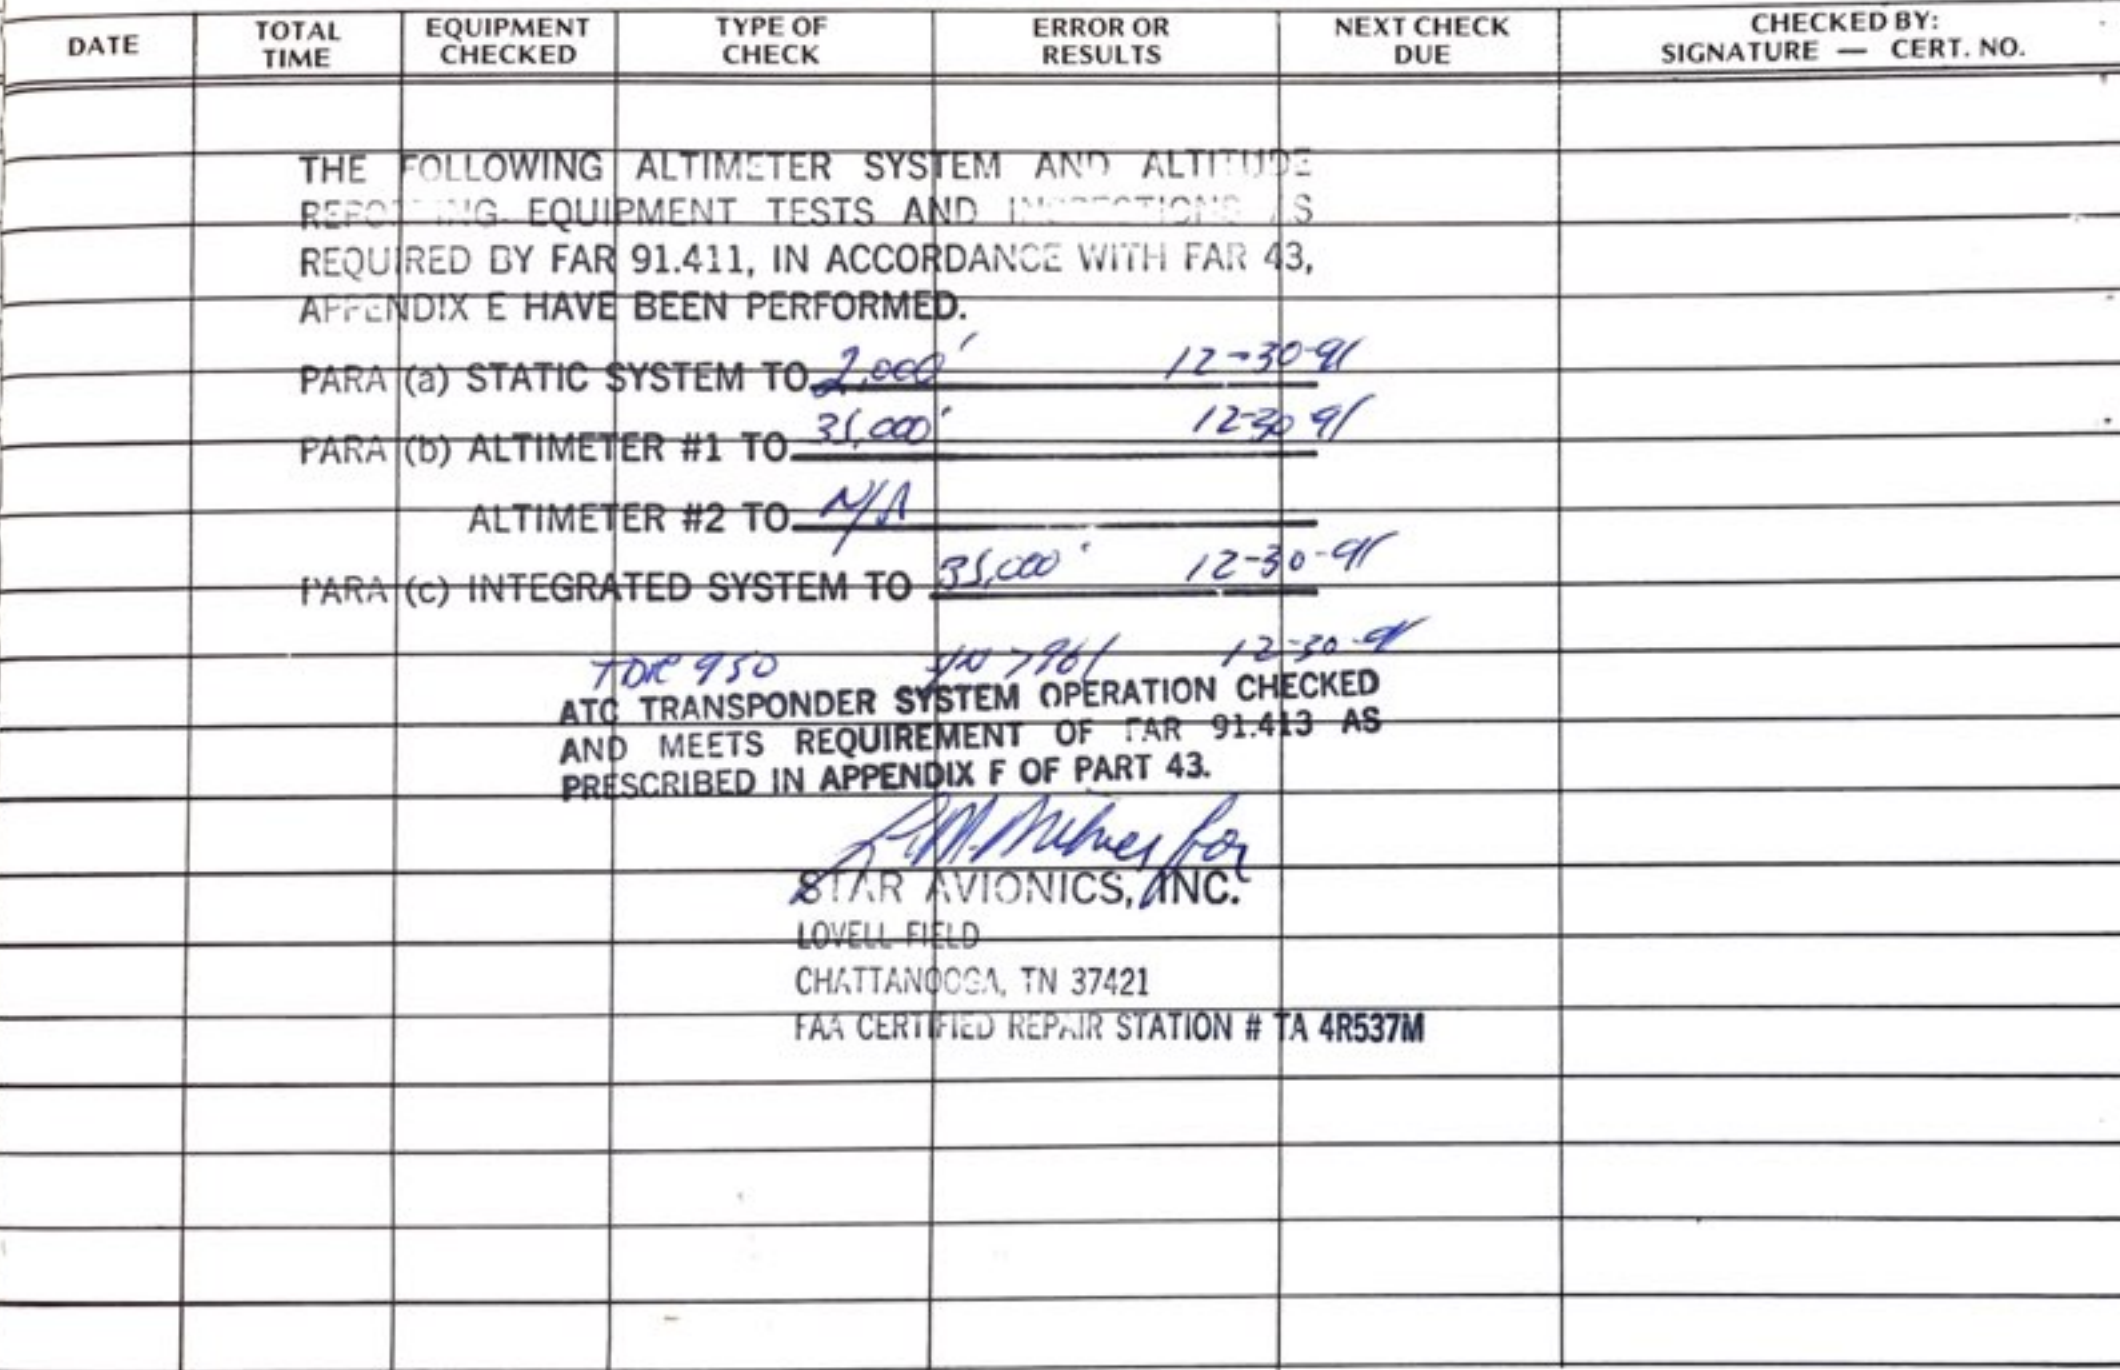 DATE TOTAL TIME EQUIPMENT CHECKED TYPE OF CHECK ERROR OR RESULTS NEXT CHECK DUE CHECKED BY: SIGNATURE — CERT. NO.
THE FOLLOWING ALTIMETER SYSTEM AND ALTITUDE
REPORTING EQUIPMENT TESTS AND INSPECTIONS AS
REQUIRED BY FAR 91.411, IN ACCORDANCE WITH FAR 43,
APPENDIX E HAVE BEEN PERFORMED.
PARA (a) STATIC SYSTEM TO 2,000' 12-30-91
PARA (b) ALTIMETER #1 TO 35,000' 12-30 91
ALTIMETER #2 TO N/A
PARA (c) INTEGRATED SYSTEM TO 35,000' 12-30-91
TDR 950 S/N 7961 12-30-91
ATC TRANSPONDER SYSTEM OPERATION CHECKED
AND MEETS REQUIREMENT OF FAR 91.413 AS
PRESCRIBED IN APPENDIX F OF PART 43.
for
STAR AVIONICS, INC.
LOVELL FIELD
CHATTANOOGA, TN 37421
FAA CERTIFIED REPAIR STATION # TA 4R537M